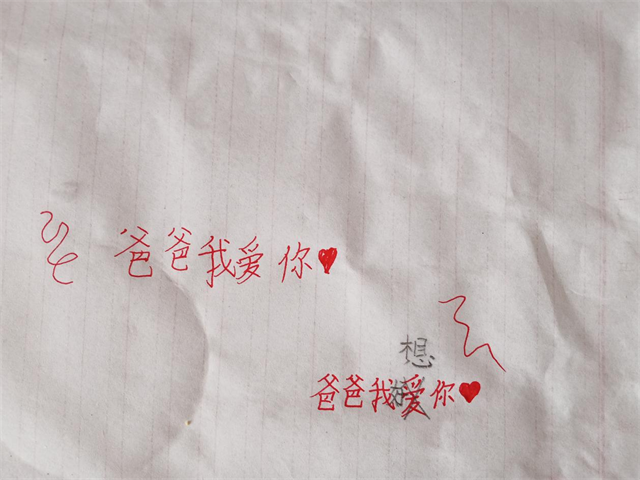 爸爸我爱你♥
想
爸爸我爱你♥